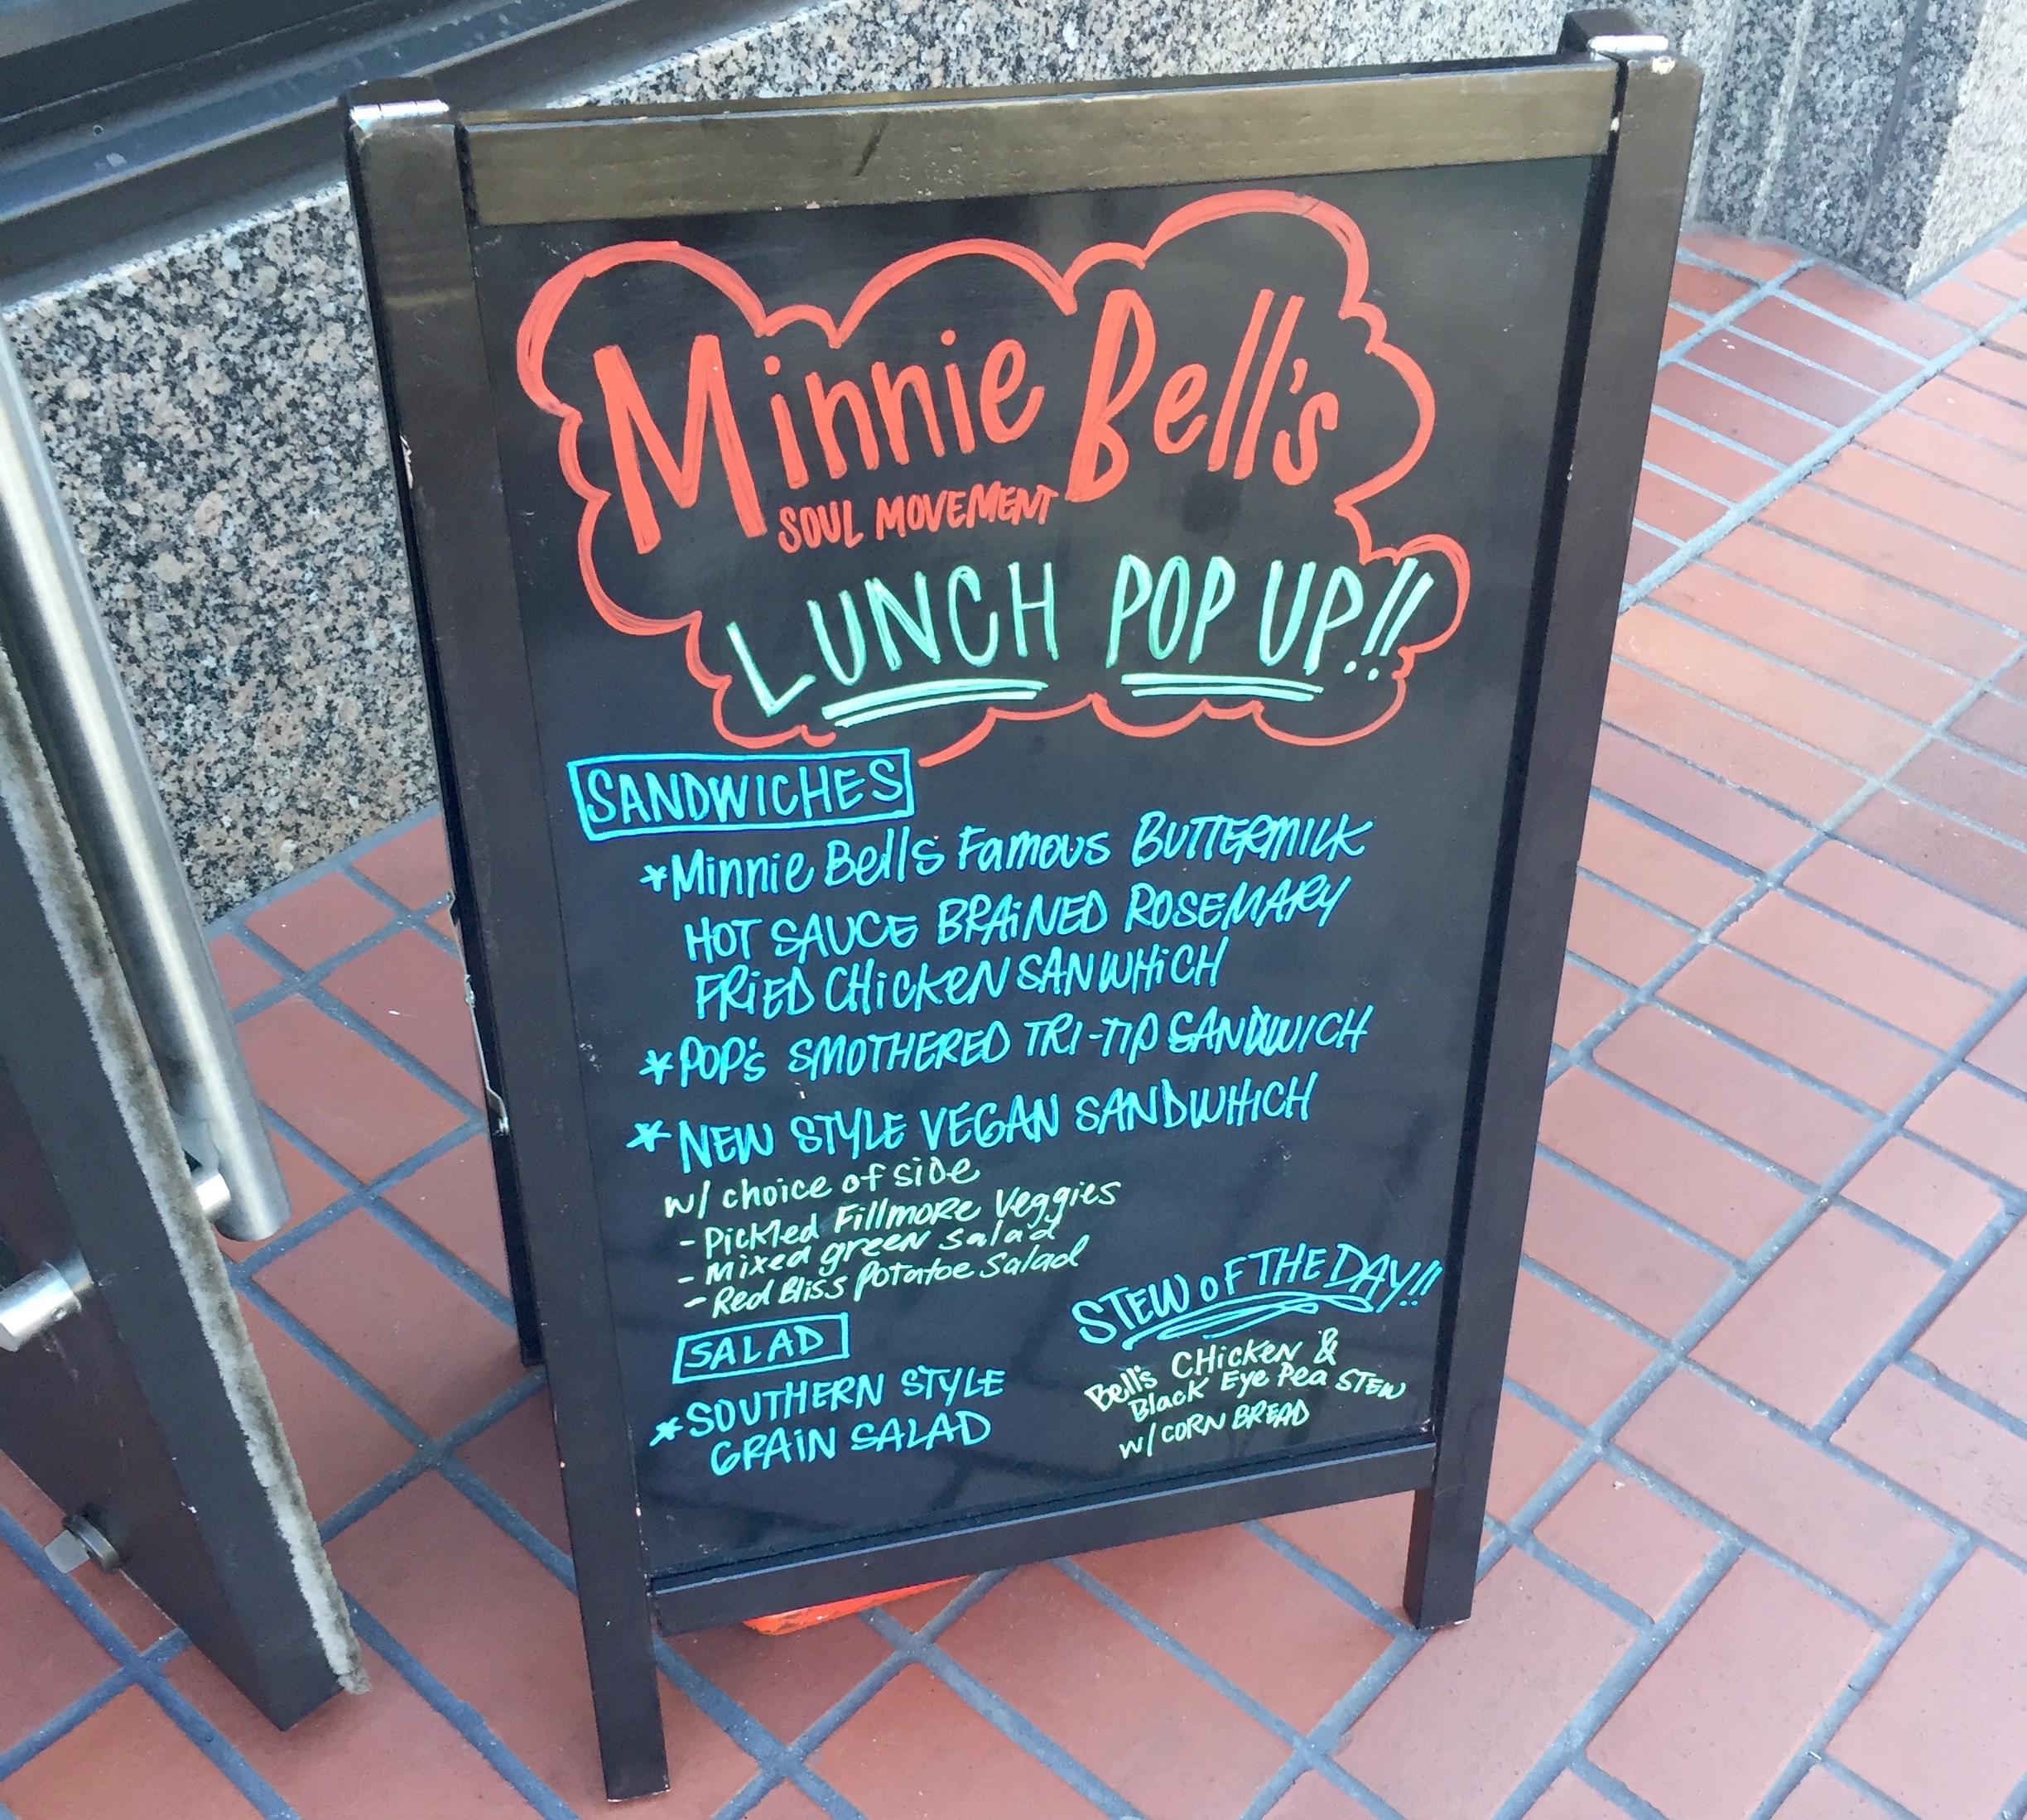 Minnie Bell's
SOUL MOVEMENT
LUNCH POP UP!!
SANDWICHES
*Minnie Bell's Famous BUTTERMILK
HOT SAUCE BRAiNED ROSEMARY
FRiED CHiCKEN SANWHiCH
*POP's SMOTHERED TRI-TIP SANDWICH
*NEW STYLE VEGAN SANDWHICH
w/ choice of side
- Pickled Fillmore Veggies
- Mixed green salad
- Red Bliss Potatoe Salad
SALAD
*SOUTHERN STYLE
GRAiN SALAD
STEW oF THE DAY!!
Bell's CHicken &
Black Eye Pea STEW
w/ CORN BREAD